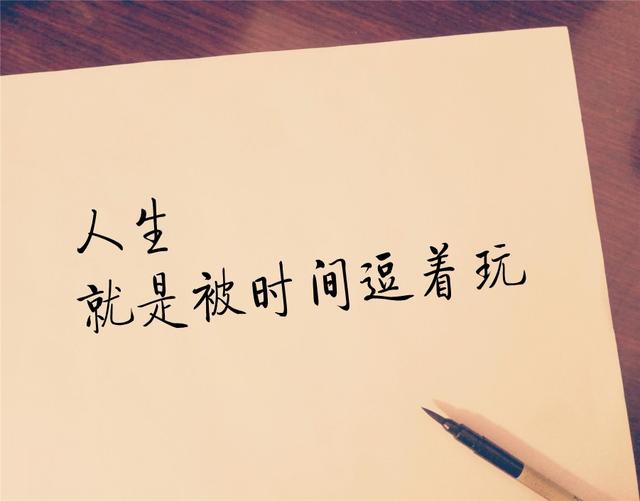 人生
就是被时间逗着玩